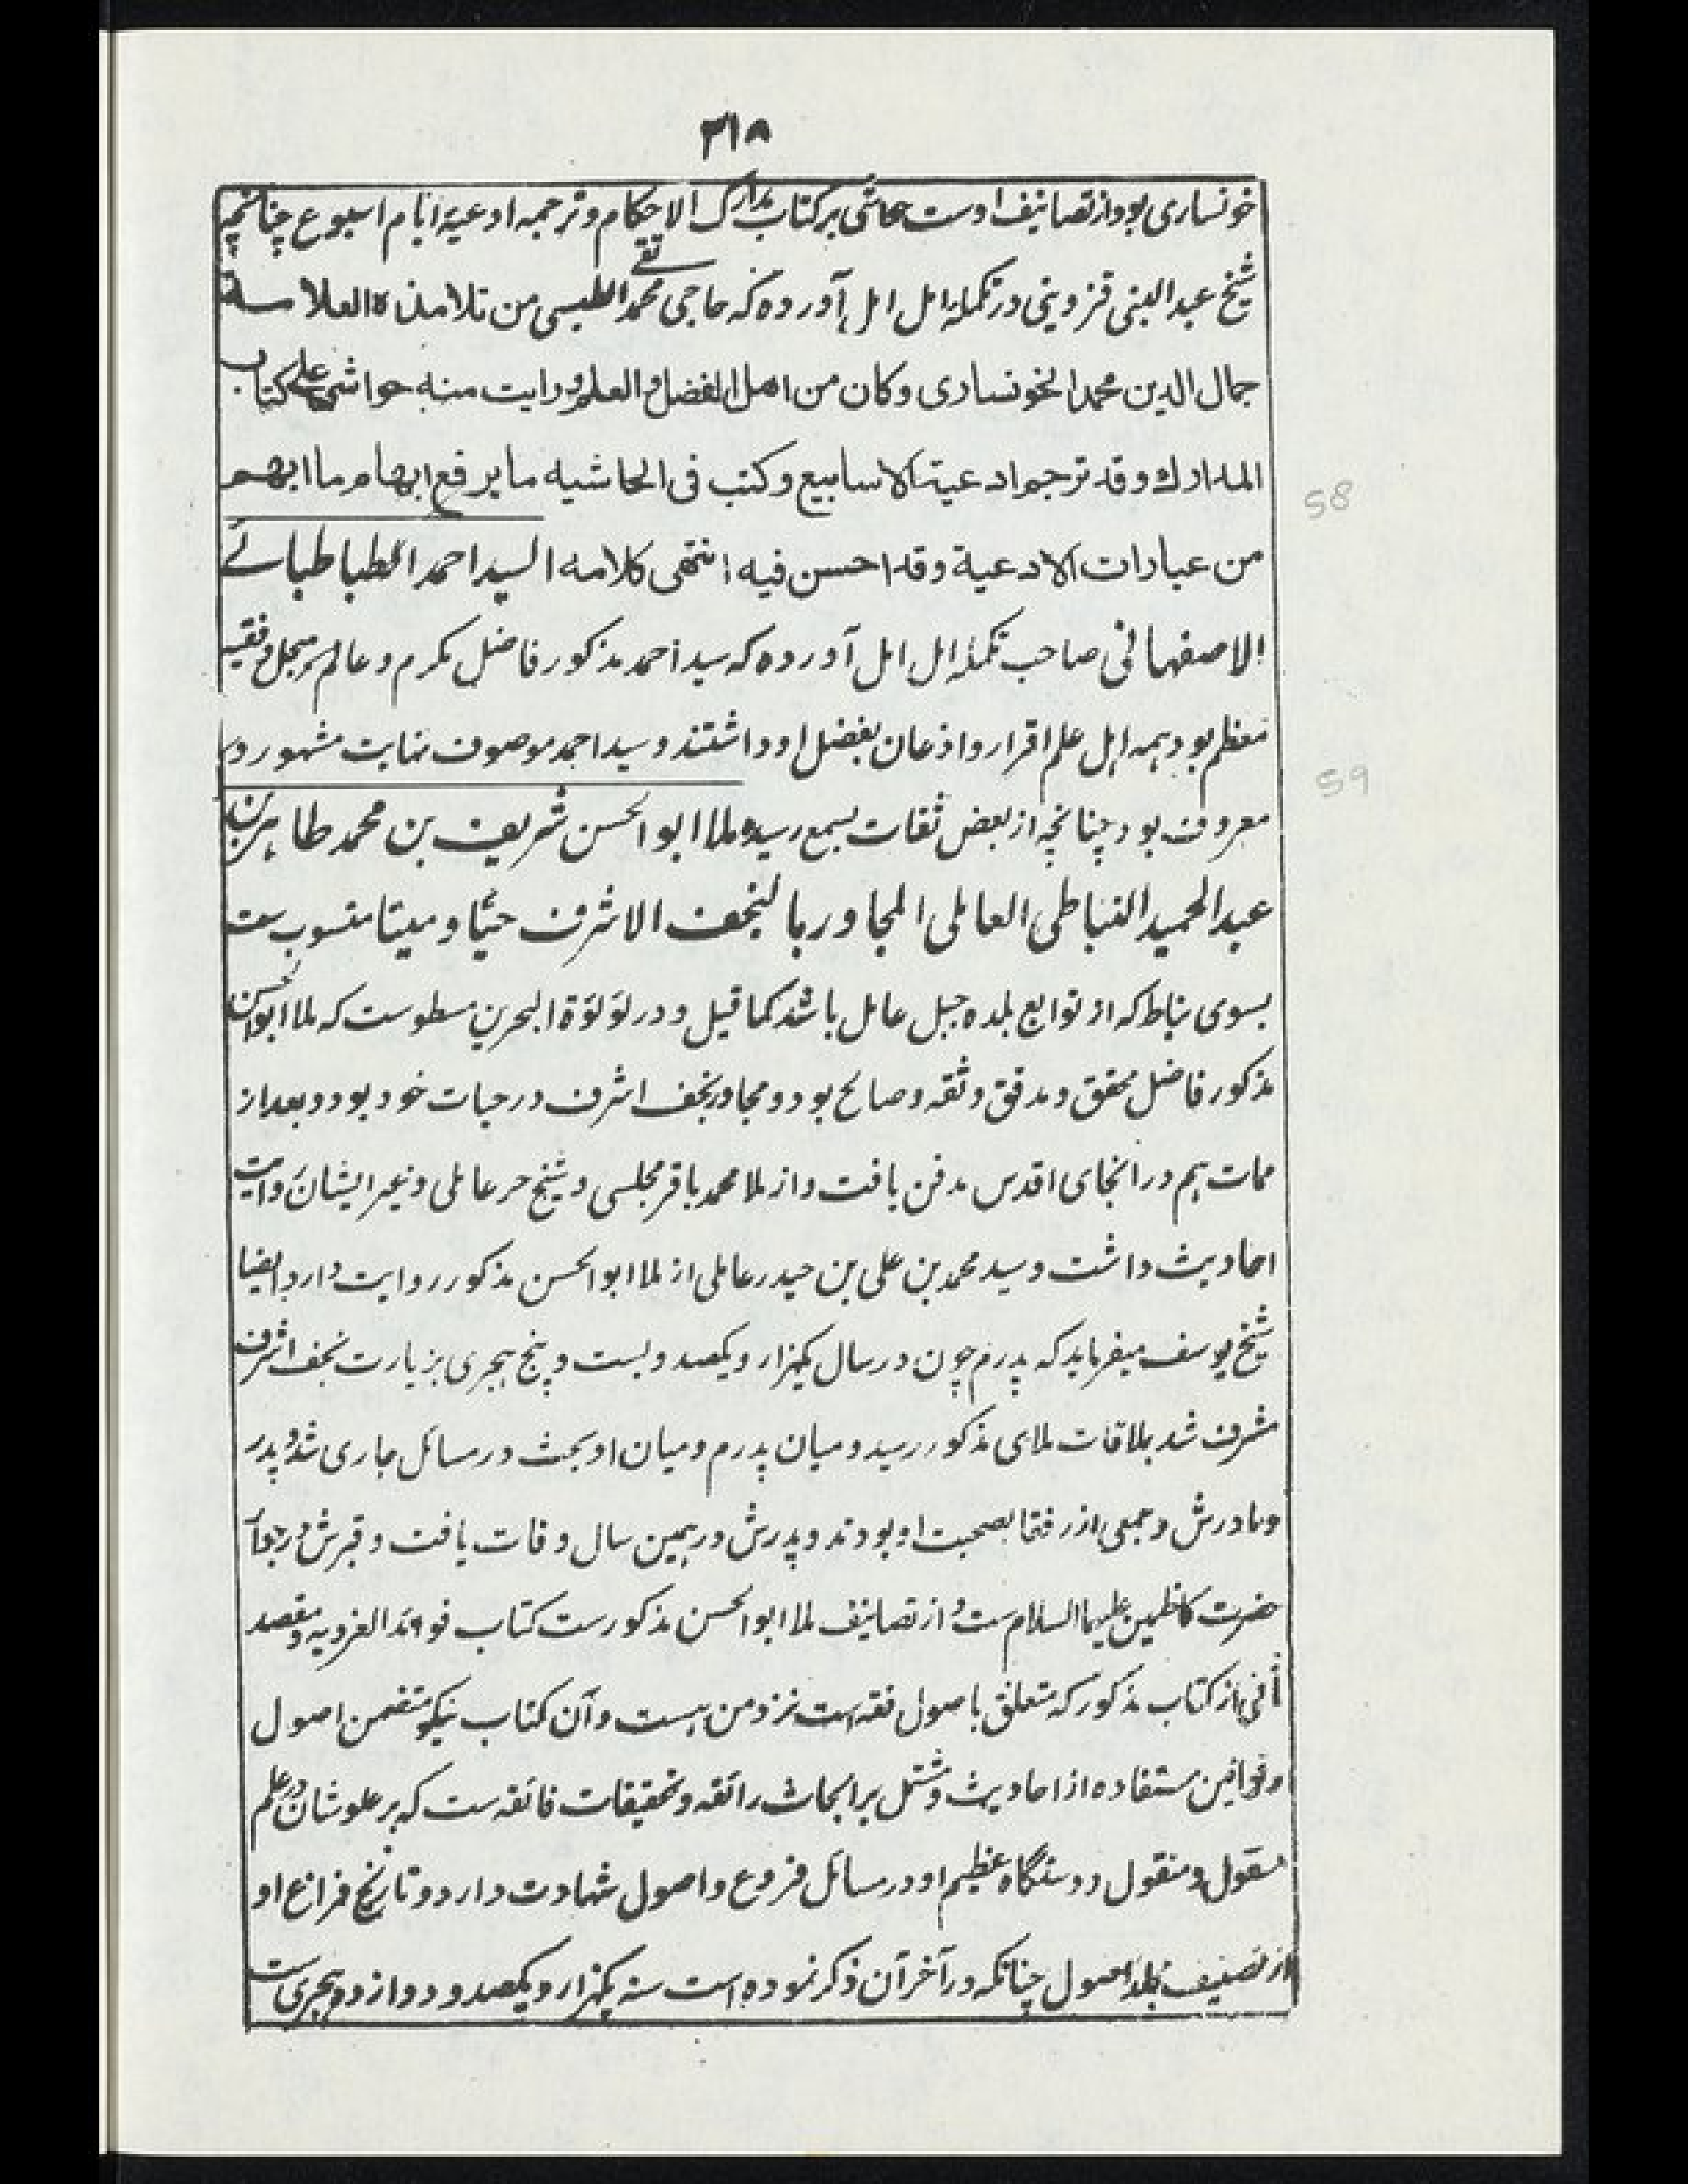 ٣١٨
خونساری بود و از تصانیف اوست حواشی بر کتاب مدارک الاحکام و ترجمه ادعیۀ ایام اسبوع چنانچه
شیخ عبدالنبی قزوینی در تکملۀ امل امل آورده که حاجی محمد تقے الطبسی من تلامذة العلامة
جمال الدین محمد الخونساری وکان من اهل الفضل والعلم ورایت منه حواشی علی کتاب
المدارك وقد ترجم ادعیة الاسابیع وکتب فی الحاشیه ما یرفع ابهام ما ابهم
من عبارات الادعیة وقد احسن فیه انتهی کلامه السید احمد الطباطبائے
الاصفهانی صاحب تکملۀ امل امل آورده که سید احمد مذکور فاضل مکرم و عالم مبجل و فقیه
معظم بود همه اهل علم اقرار و اذعان بفضل او داشتند و سید احمد موصوف نهایت مشهور و
معروف بود چنانچه از بعض ثقات بسمع رسیده ملا ابو الحسن شریف بن محمد طاهر بن
عبد الحمید النباطی العاملی المجاور بالنجف الاشرف حیّا و میتا منسوب ست
بسوی نباط که از توابع بلده جبل عامل باشد کما قیل و در لؤلؤة البحرین مسطوست که ملا ابو الحسن
مذکور فاضل محقق و مدقق و ثقه و صالح بود و مجاور نجف اشرف در حیات خود بود و بعد از
ممات هم در انجای اقدس مدفن یافت و از ملا محمد باقر مجلسی و شیخ حر عاملی و غیر ایشان روایت
احادیث داشت و سید محمد بن علی بن حیدر عاملی از ملا ابو الحسن مذکور روایت دارد ایضا
شیخ یوسف میفرماید که پدرم چون در سال یکهزار و یکصد و بست و پنج هجری بزیارت نجف اشرف
مشرف شد بملاقات ملای مذکور رسید و میان پدرم و میان او بحث در مسائل جاری شد و پدر
و مادرش و جمعی از رفقا بصحبت او بودند و پدرش در همین سال وفات یافت و قبرش در
حضرت کاظمین علیهما السلام ست و از تصانیف ملا ابو الحسن مذکورست کتاب فوائد الغرویه و مقصد
ثانی از کتاب مذکور که متعلق باصول فقه است نزد من هست و آن کتاب نیکو متضمن اصول
و قوانین مستفاده از احادیث و مشتمل بر ابحاث رائقه و تحقیقات فائقه ست که بر علو شان در علم
معقول و منقول و دستگاه عظیم او در مسائل فروع و اصول شهادت دارد و تاریخ فراغ او
از تصنیف جلد اصول چنانکه در آخر آن ذکر نموده است سنه یکهزار و یکصد و دوازده هجری ست
58
59